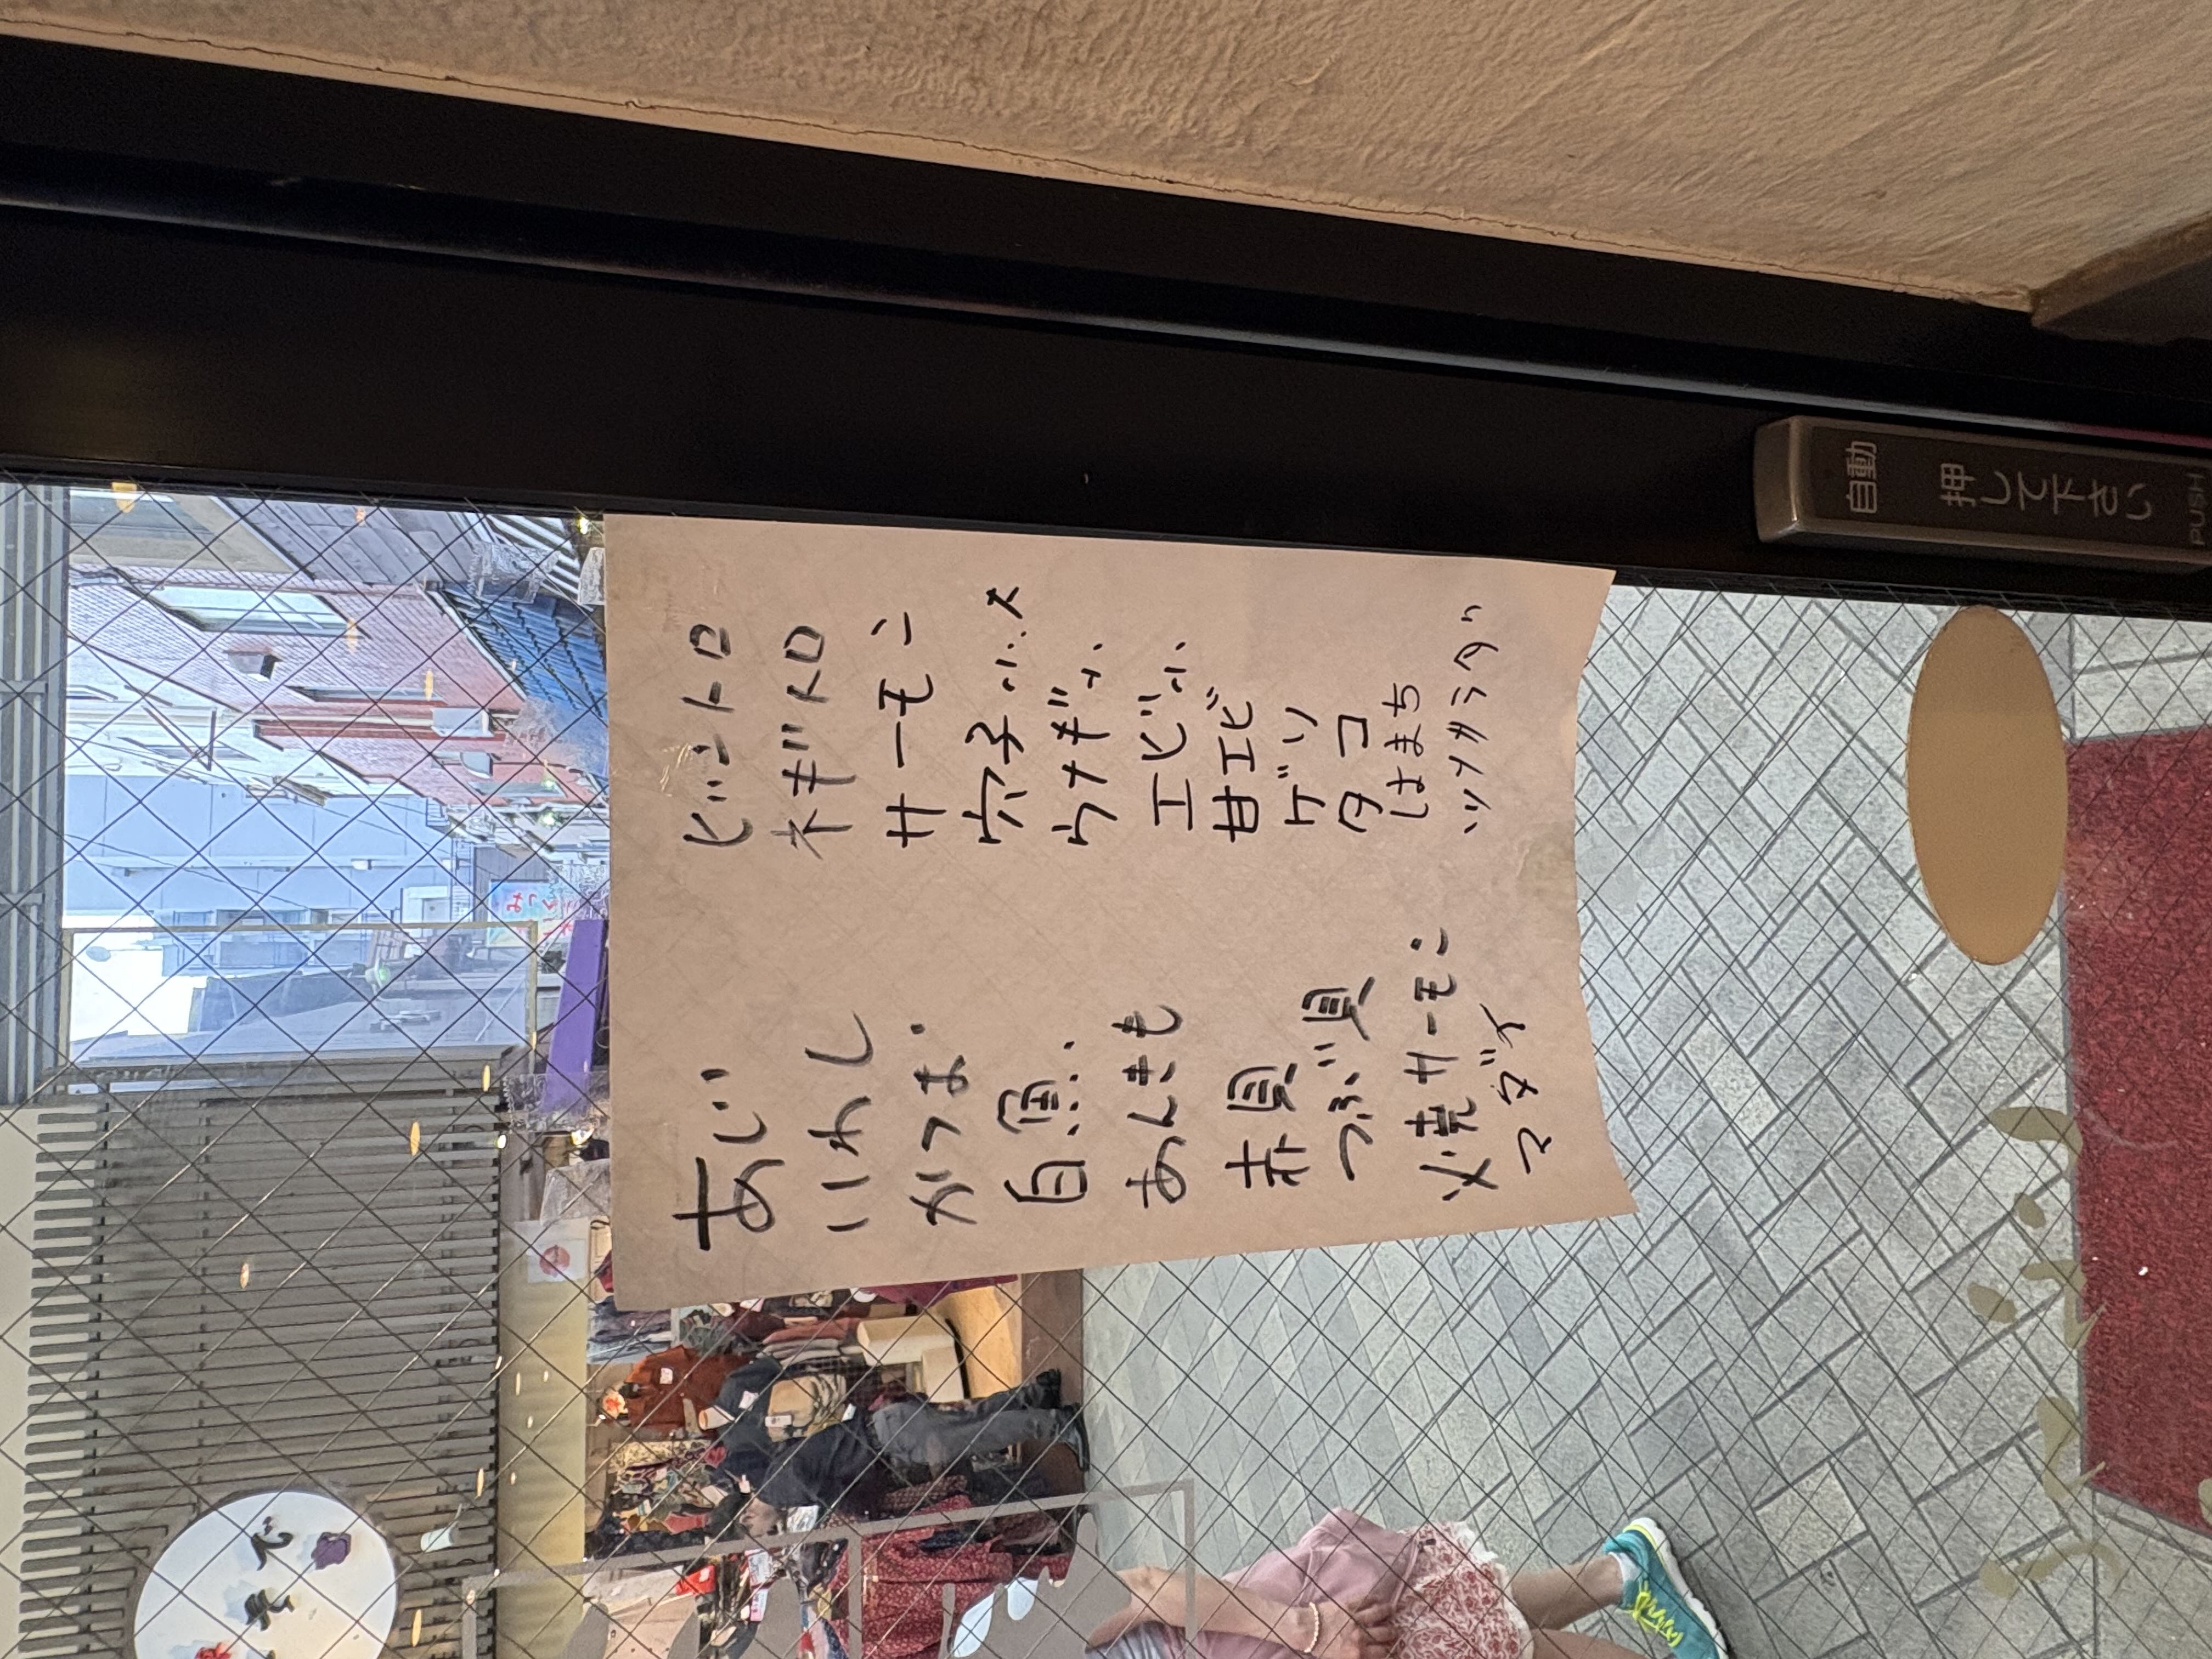 あじ
いわし
かつお
白魚
あんきも
赤貝
つぶ貝
焼サーモン
マダイ
ビントロ
ネギトロ
サーモン
穴子小.大
ウナギ小
エビ小
甘エビ
ゲソ
タコ
はまち
ツナサラダ
自動
押して下さい
PUSH